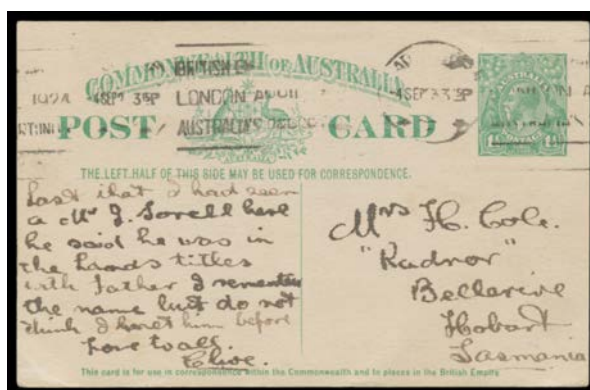 COMMONWEALTH OF AUSTRALIA
BRITISH E
1924 4SEP 3 35P LONDON 4SEP 3 35P
AUSTRALIA'S
POST CARD
THE LEFT HALF OF THIS SIDE MAY BE USED FOR CORRESPONDENCE.
Last that I had seen
a Mr J. Sorell here
he said he was in
the Lands titles
with Father I remember
the name but do not
think I have met him before
Love to all.
Clive.
Mrs H. Cole.
"Radnor"
Bellerive
Hobart
Tasmania
This card is for use in correspondence within the Commonwealth and to places in the British Empire